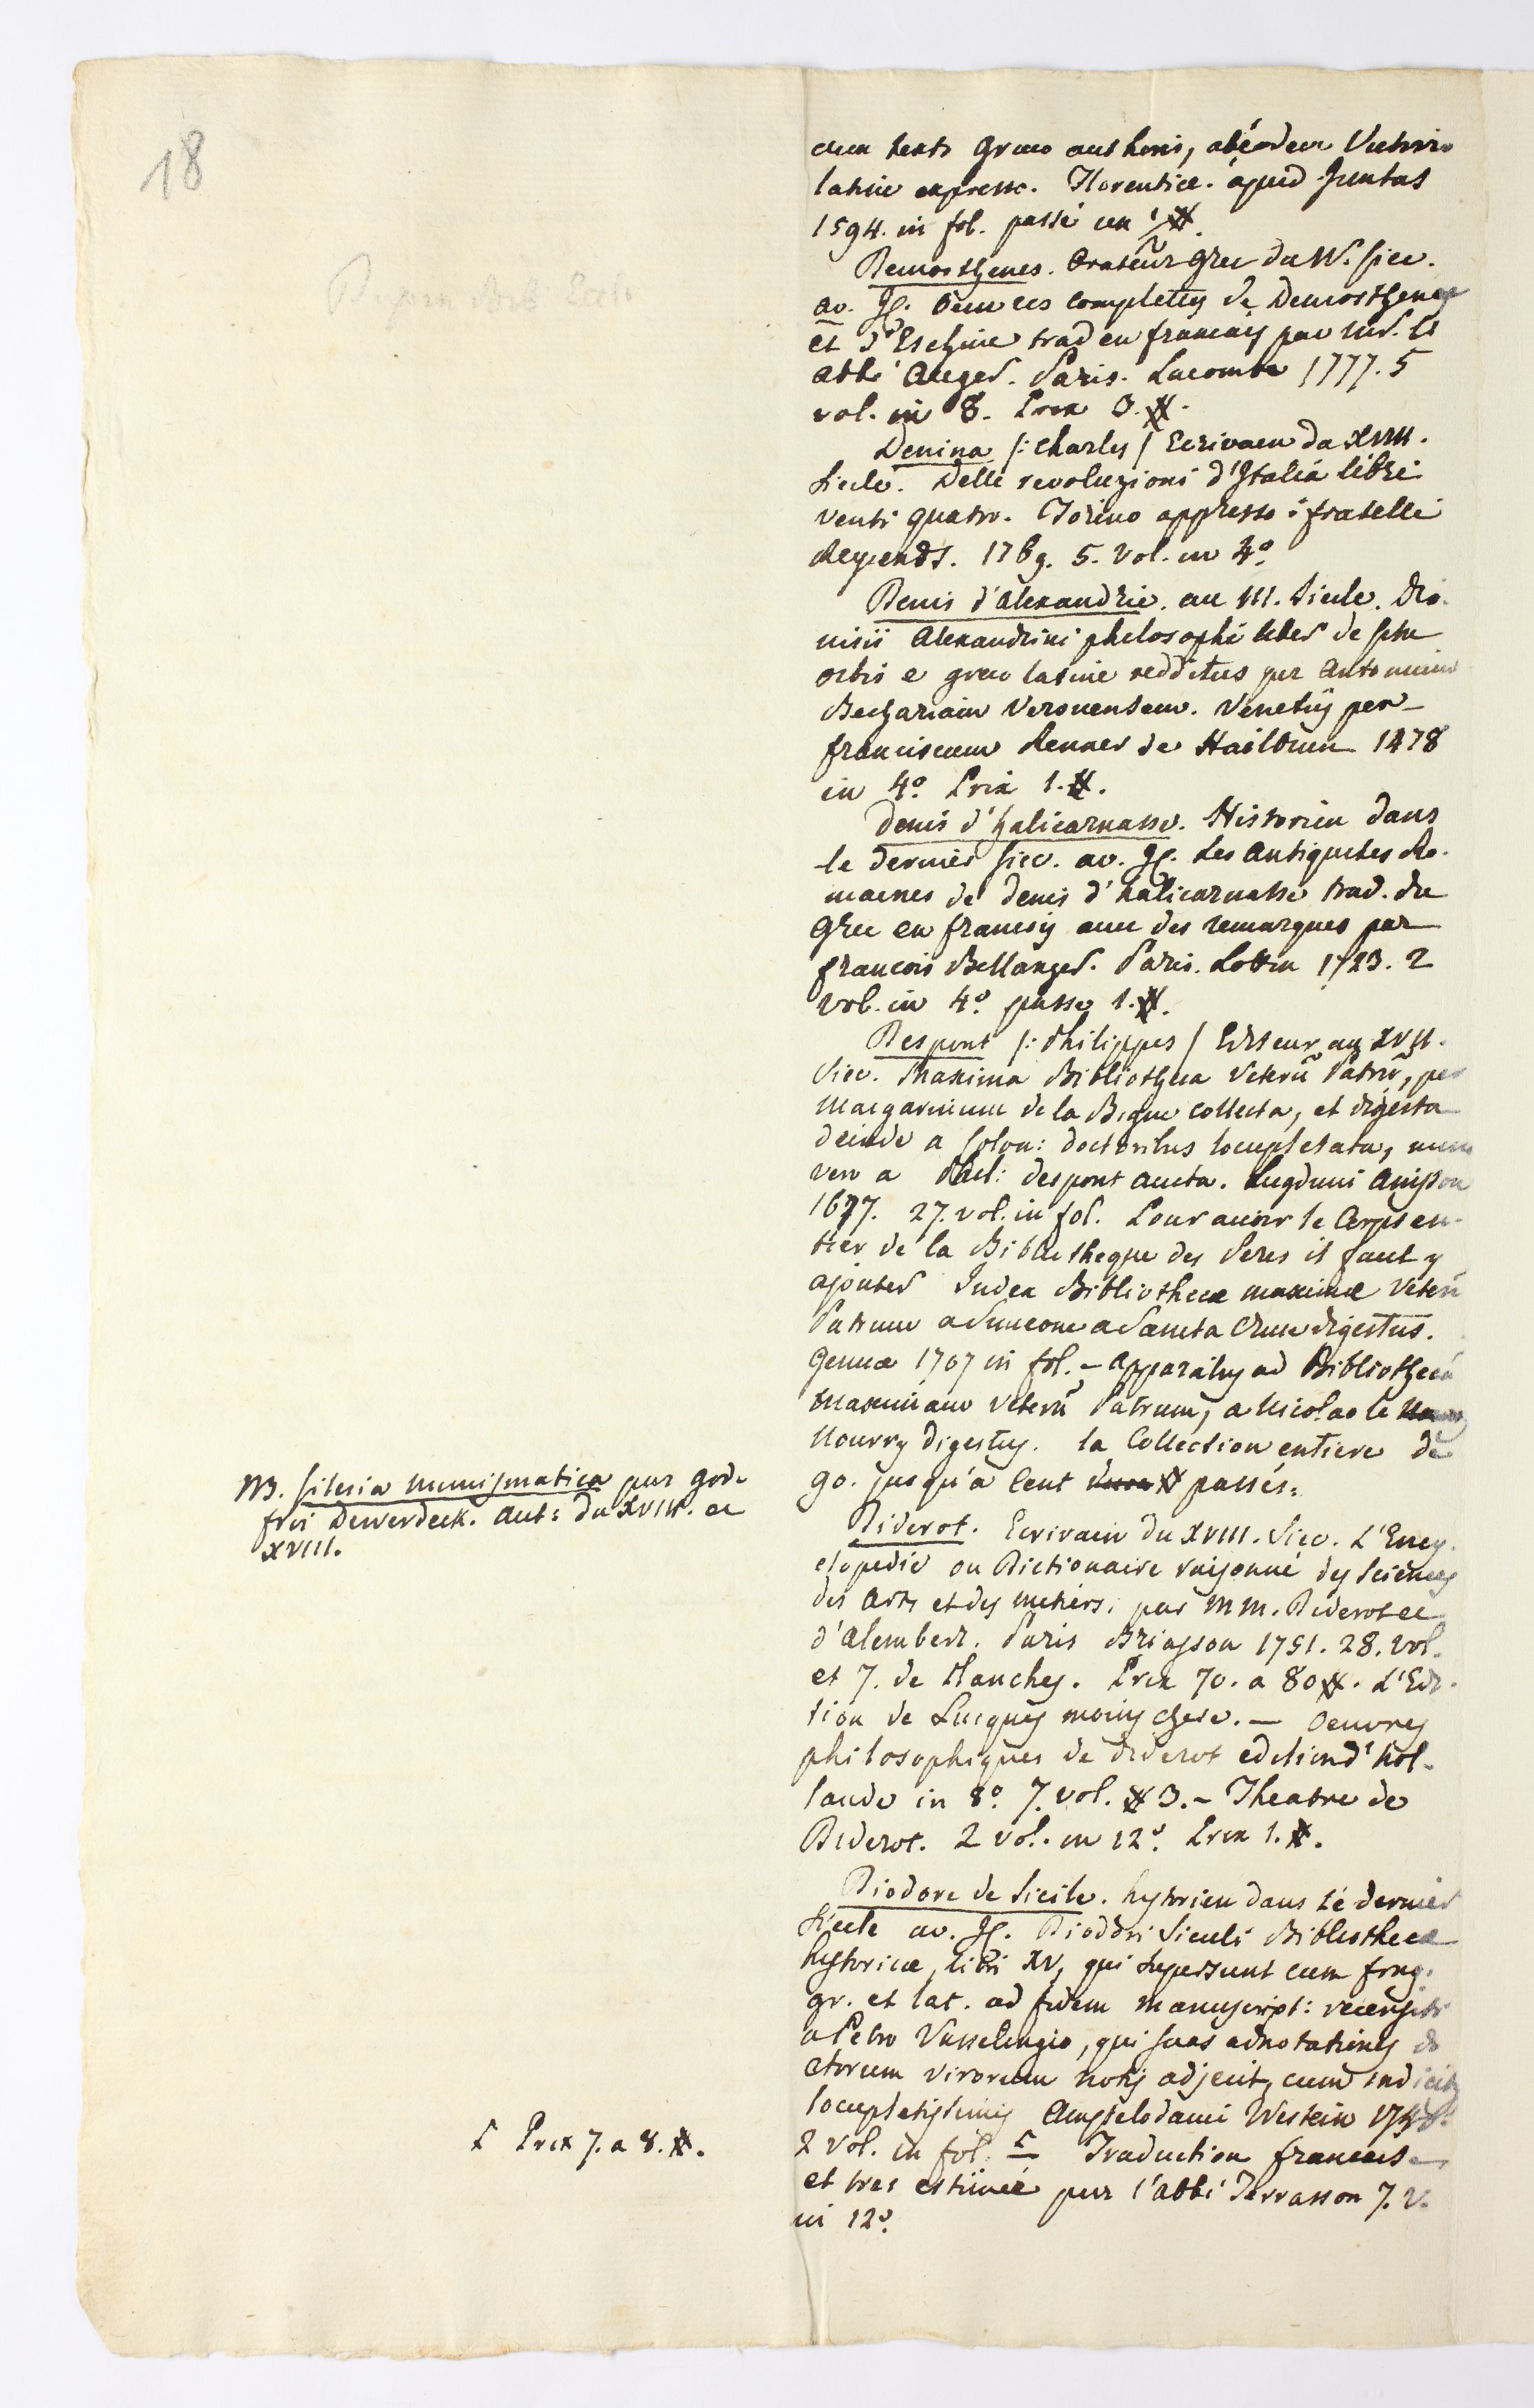 18
cum textu Graeco authoris, ab eodem Victorio
latine expresso. Florentiae. apud Juntas
1594. in fol. passé un #.
Demosthenes. Orateur Grec du IV. siec.
av. JC. Oeuvres complettes de Demosthene
et d'Eschine trad en francais par Mr. l'
abbé Auger. Paris. Lacombe 1777. 5
vol. in 8. Prix 3. #.
Denina /: Charles / Ecrivain du XVIII.
siecle. Delle revoluzioni d'Italia libri
venti quatro. Torino appresso i fratelli
Reycends. 1769. 5. vol. in 4º
Denis d'Alexandrie. au III. siecle. Dio-
nisii Alexandrini philosophi liber de situ
orbis e greco latine redditus per Antonium
Bechariam Veronensem. Venetiis per
franciscum Renner de Hailbrun 1478
in 4º Prix 1. #.
Denis d'halicarnasse. Historien dans
le dernier siec. av. JC. Les Antiquites Ro-
maines de Denis d'halicarnasse trad. du
Grec en francois avec des remarques par
francois Bellanger. Paris. Lottin 1723. 2
vol. in 4º passe 1. #.
Despont /: Philippus / Editeur au XVII.
Siec. Maxima Bibliotheca Veterũ Patrũ, per
Margarinum de la Bigne collecta, et digesta
deinde a Colon: doctoribus locupletata, nunc
vero a Phil: Despont aucta. Lugduni Anisson
1677. 27. vol. in fol. Pour avoir le Corps en-
tier de la Bibliotheque des Peres il faut y
ajouter Index Bibliothecae maximae Veterũ
Patrum a Simeone a Sancta Cruce digestus.
Genuae 1707 in fol. – Apparatus ad Bibliothecã
Maximam Veterũ Patrum, a Nicolao le
Nourry digestus. la Collection entiere de
90. jusqu'a cent # passés.
NB. Silesia Numismatica par God-
froi Dewerdeck. Aut: du XVII. et
XVIII.
Diderot. Ecrivain du XVIII. Siec. L'Ency-
clopedie ou Dictionaire raisonné des Sciences
des Arts et des metiers, par MM. Diderot et
d'Alembert. Paris Briasson 1751. 28. vol.
et 7. de Planches. Prix 70. a 80 #. L'Edi-
tion de Lucques moins chere. – Oeuvres
philosophiques de Diderot edition d'hol-
lande in 8º. 7. vol. # 3. – Theatre de
Diderot. 2 vol. in 12º. Prix 1. #.
Diodore de Sicile. hystorien dans le dernier
Siecle av. JC. Diodori Siculi Bibliothecae
hystoricae, libri XV, qui supersunt cum frag.
gr. et lat. ad fidem manuscript: recensiti
a Petro Vasselingio, qui suas adnotationes do
ctorum virorum notis adjecit, cum indicib
locupletissimis Amstelodami Westein
2 vol. in fol. Traduction francaise
Prix 7. a 8. #.
et tres estimée par l'abbé Terrasson 7. v.
in 12º.